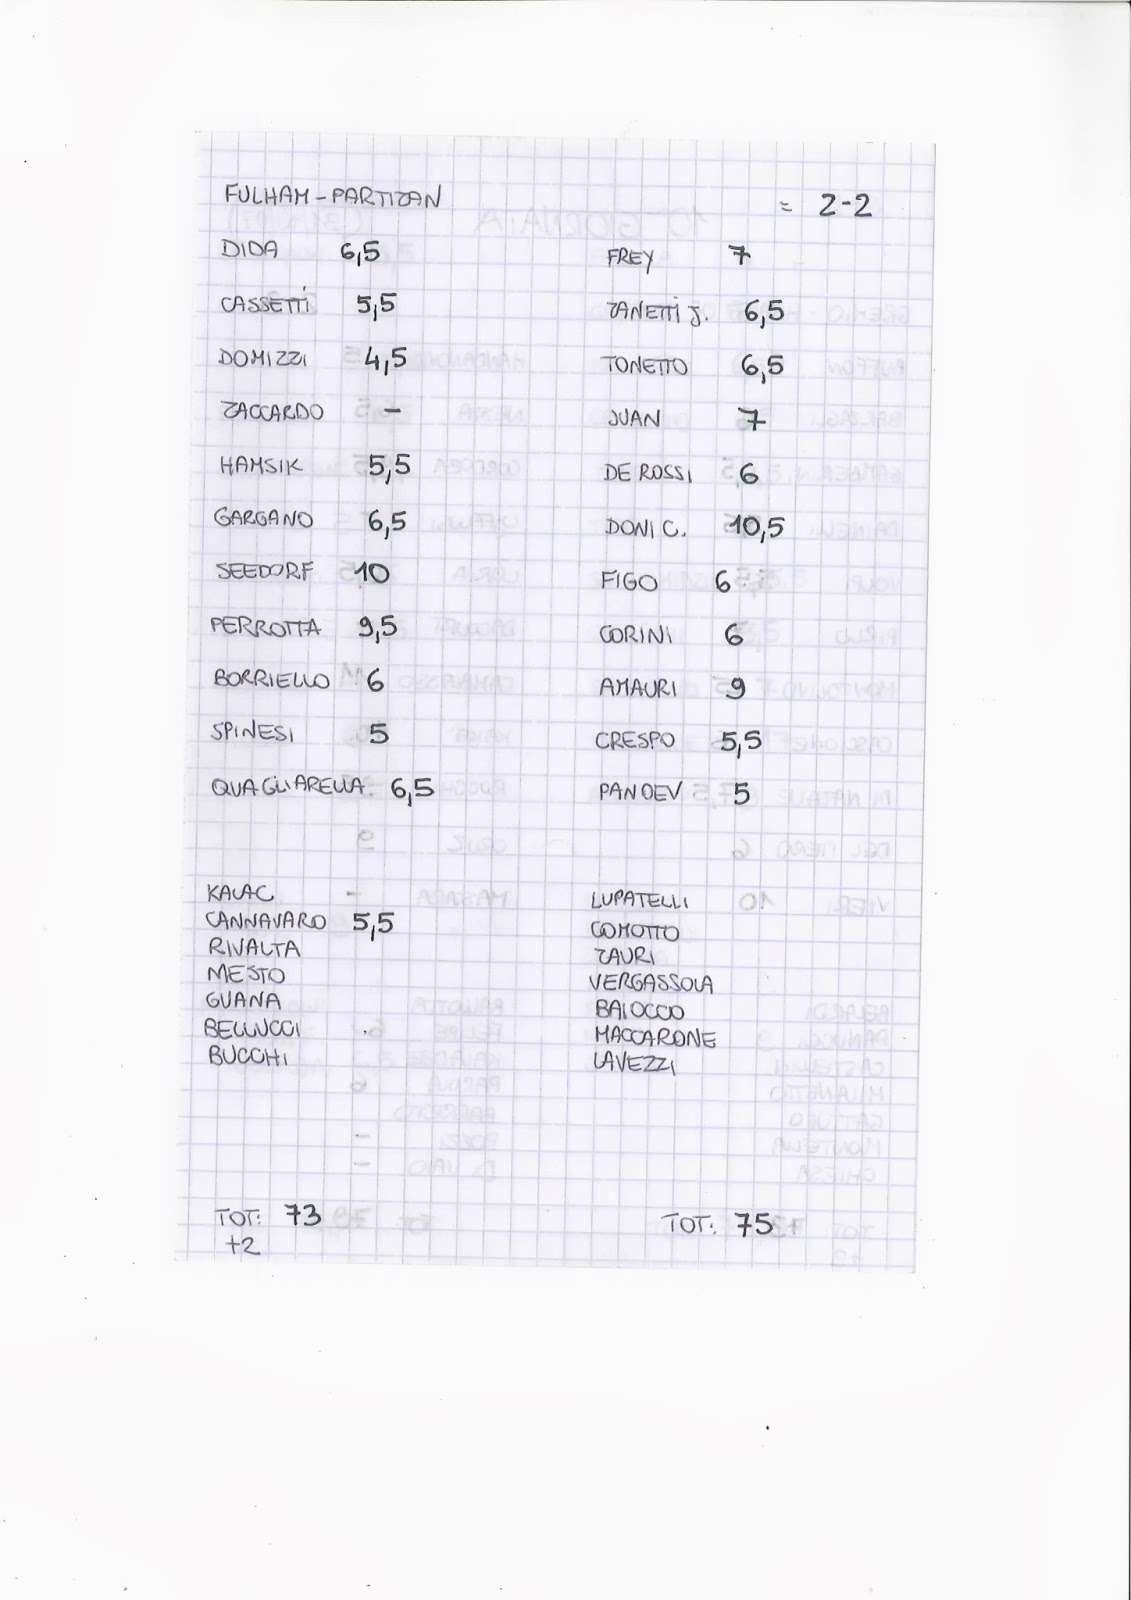 FULHAM - PARTIZAN = 2-2
DIDA 6,5 FREY 7
CASSETTI 5,5 ZANETTI J. 6,5
DOMIZZI 4,5 TONETTO 6,5
ZACCARDO - JUAN 7
HAMSIK 5,5 DE ROSSI 6
GARGANO 6,5 DONI C. 10,5
SEEDORF 10 FIGO 6
PERROTTA 9,5 CORINI 6
BORRIELLO 6 AMAURI 9
SPINESI 5 CRESPO 5,5
QUAGLIARELLA 6,5 PANDEV 5
KALAC - LUPATELLI
CANNAVARO 5,5 COMOTTO
RIVALTA ZAURI
MESTO VERGASSOLA
GUANA BAIOCCO
BELLUCCI MACCARONE
BUCCHI LAVEZZI
TOT: 73 TOT: 75
+2